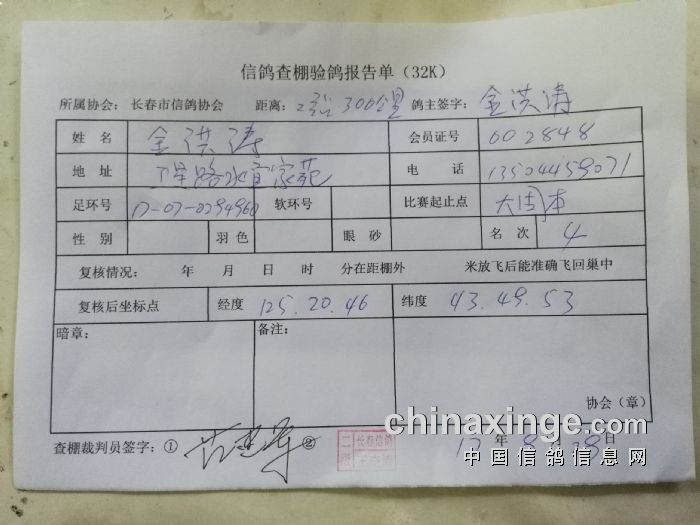 信鸽查棚验鸽报告单（32K）
所属协会： 长春市信鸽协会 距离： 300公里 鸽主签字： 金洪涛
姓 名 金洪涛 会员证号 602848
地 址 路水 家苑 电 话 13504459071
足环号 17-07-0294960 软环号 比赛起止点
性 别 羽色 眼 砂 名 次 4
复核情况： 年 月 日 时 分在距棚外 米放飞后能准确飞回巢中
复核后坐标点 经度 125.20.46 纬度 43.49.53
暗章： 备注：
协会（章）
查棚裁判员签字：① ② 长春信鸽 17 年 8 月 28 日
chinaxinge.com
中国信鸽信息网